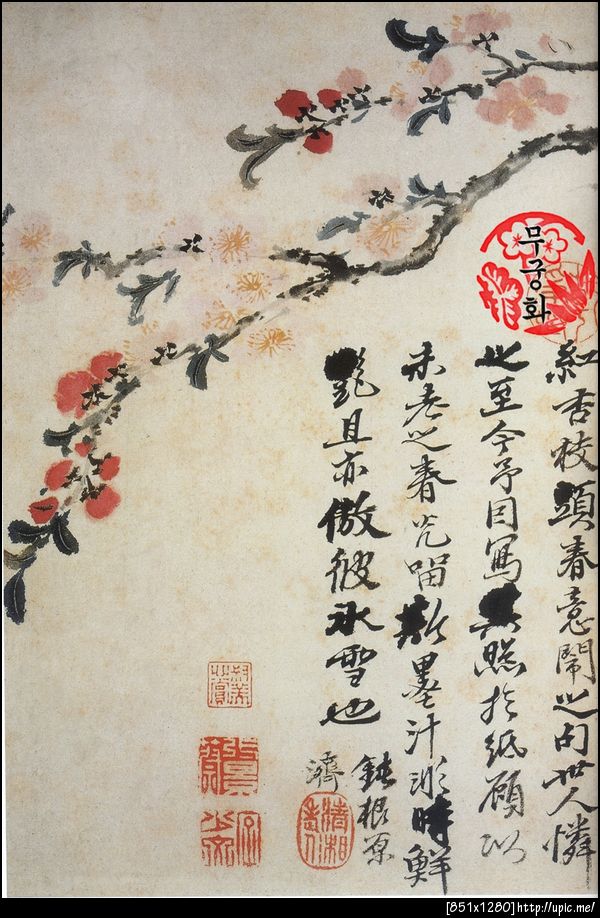 무궁화
紅杏枝頭春意鬧之句世人憐
之至今予因寫其照於紙顧以
未老之春光留斯墨汁時鮮
艷且亦傲彼冰雪也
鈍根原
濟
清湘老人
[851x1280]http://upic.me/